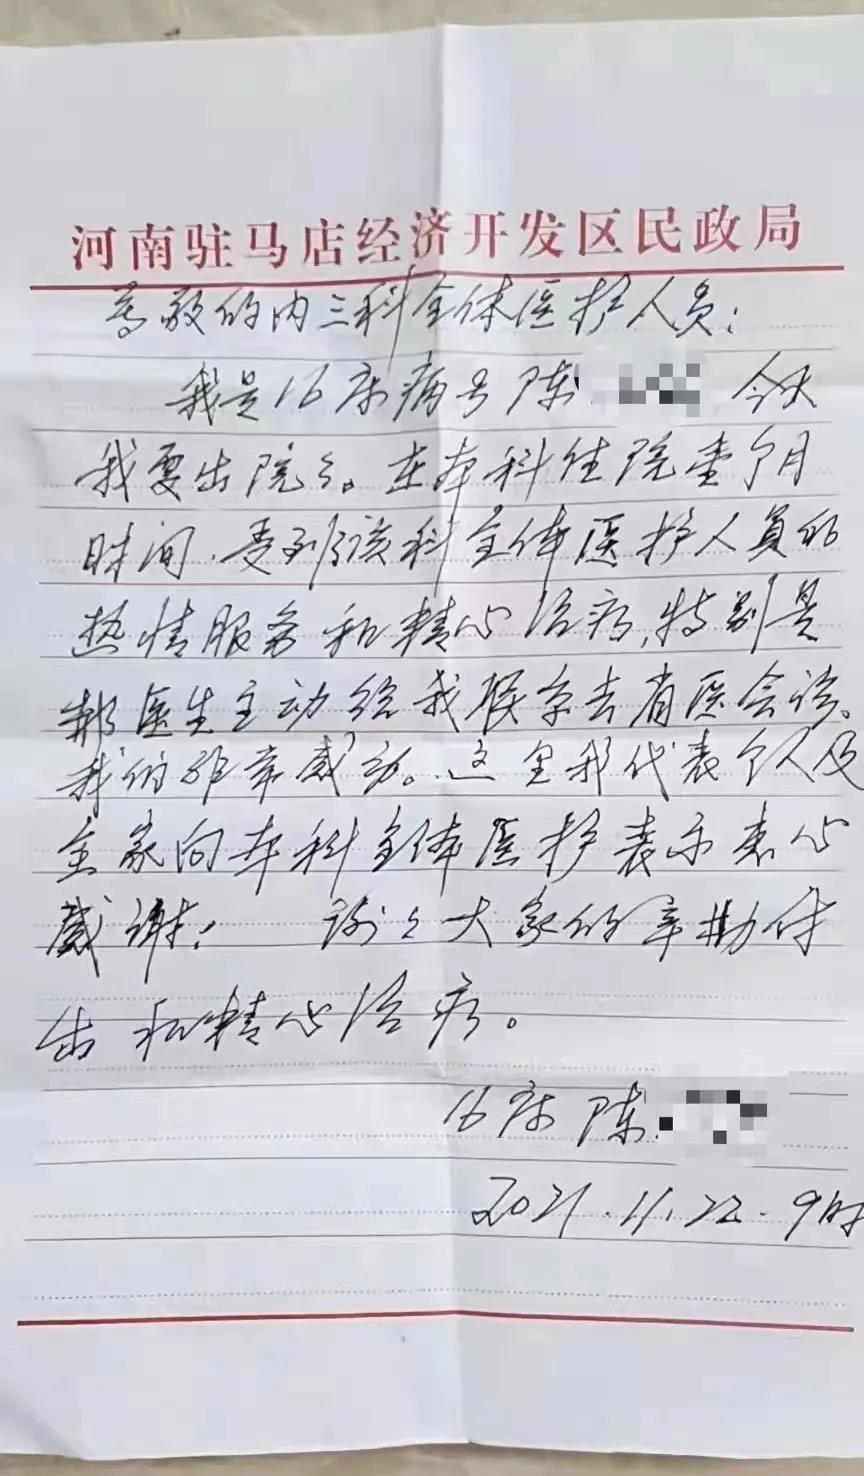 河南驻马店经济开发区民政局
尊敬的内三科全体医护人员:
我是16床病号陈 今天
我要出院了。在本科住院壹个月
时间,受到该科全体医护人员的
热情服务和精心治疗,特别是
医生主动给我联系去省医会诊。
我们非常感动。这里我代表个人及
全家向本科全体医护表示衷心
感谢! 谢谢大家的辛勤付
出和精心治疗。
16床 陈
2021.11.22.9时